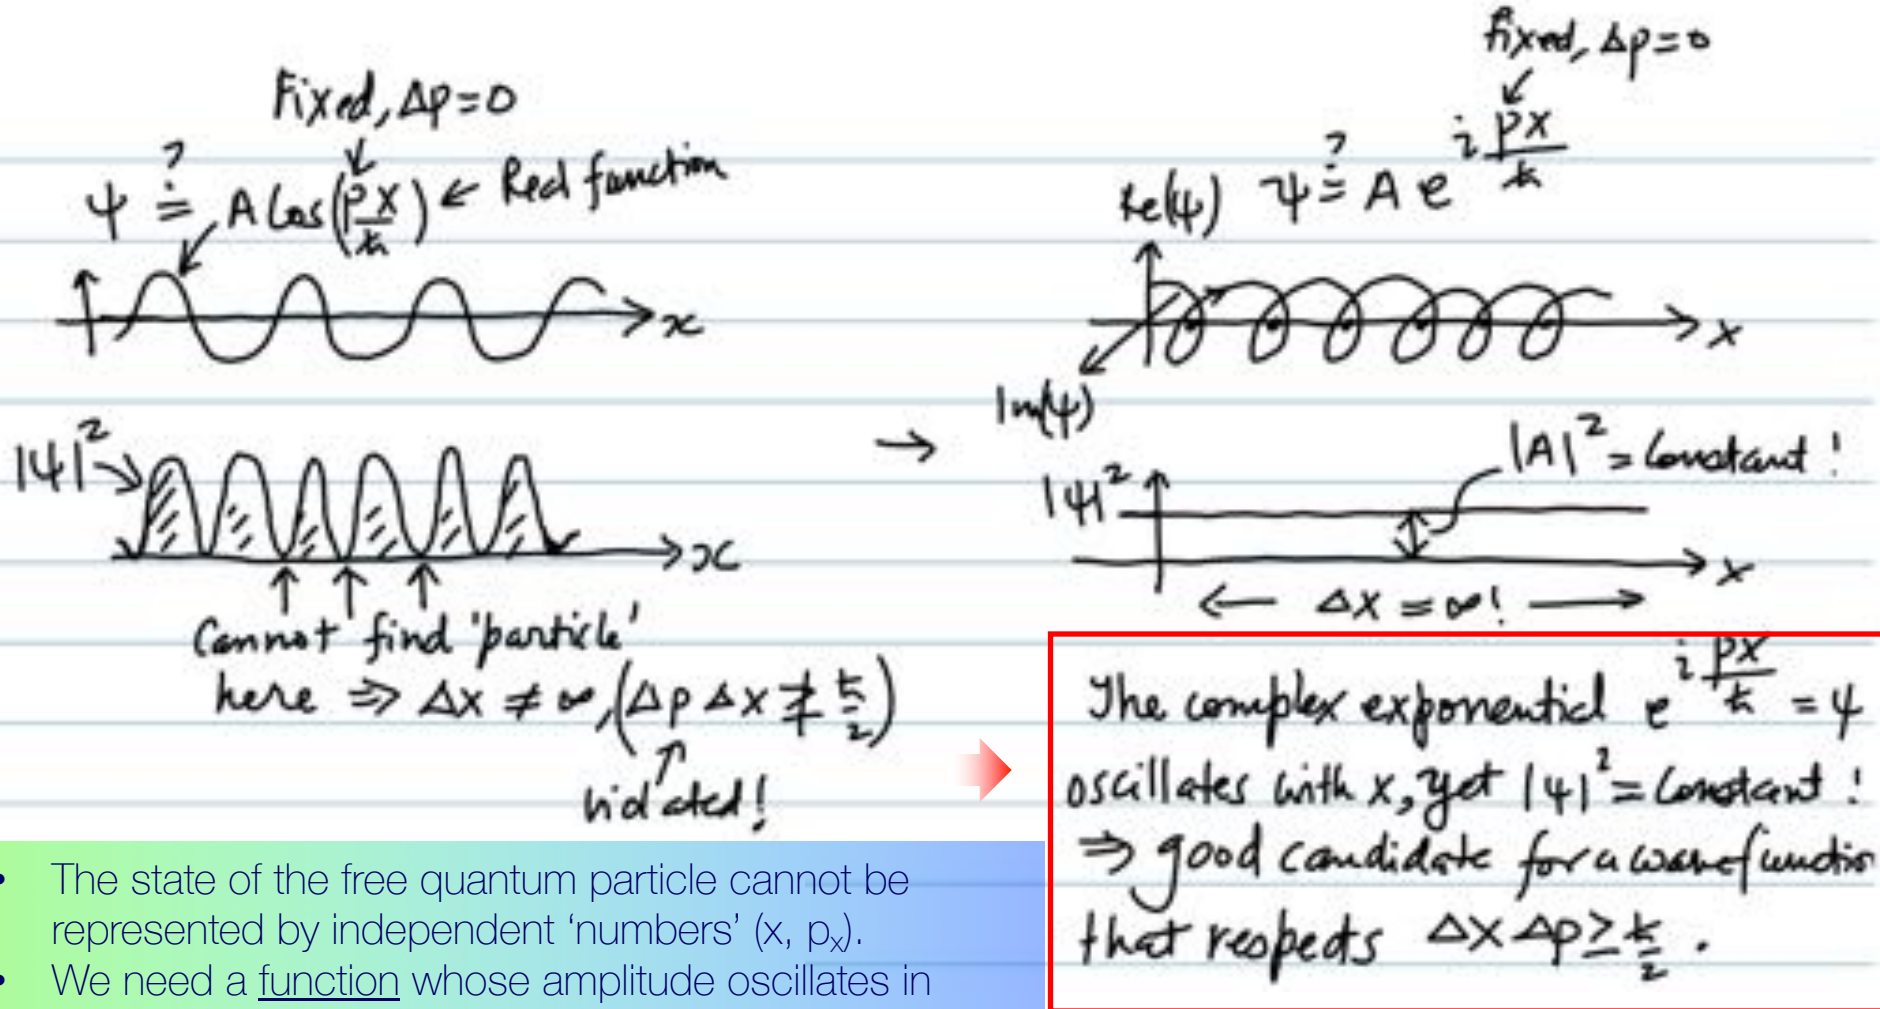 Fixed, Δp=0
ψ ≟ A Cos(px/ħ) ← Real function
x
|ψ|²
x
Cannot find 'particle'
here ⇒ Δx ≠ ∞, (Δp Δx ≱ ħ/2)
violated!
→
fixed, Δp=0
Re(ψ) ψ ≟ A e^{i px/ħ}
x
Im(ψ)
|A|² = Constant !
|ψ|²
x
← Δx = ∞! →
The complex exponential e^{i px/ħ} = ψ
oscillates with x, yet |ψ|² = Constant !
⇒ good candidate for a wavefunction
that respects Δx Δp ≥ ħ/2 .
• The state of the free quantum particle cannot be
represented by independent ‘numbers’ (x, pₓ).
• We need a function whose amplitude oscillates in